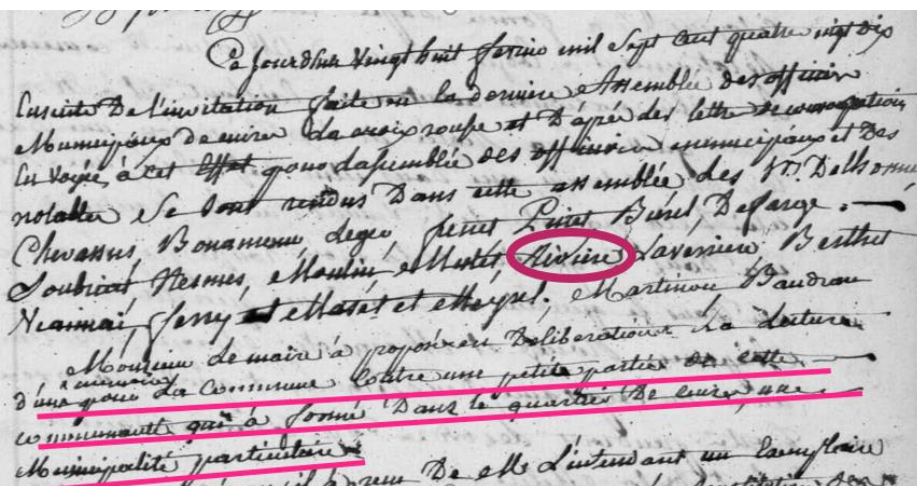 Ce jourdhui vingt huit fevrier mil sept cent quatre vingt dix
Ensuite De l'invitation faite en la derniere assemblée des officiers
Municipaux De cuire La croix rousse et D'après des lettre de convocation
Envoyée à cet Effet pour Lassemblée des officiers municipaux et Des
notables Se Sont rendus Dans cette assemblée, Les Srs. Delhorme
Chevassus, Bonamour, Leger Pitet Burel Defarge.
Soubirat Nesmes, Moulin, Mistet, Riviere Laverriere Berthet
ferry et Maset et Meyssel. Martinon Baudrau
Monsieur Le maire à proposé en Deliberation La Lecture
d'un memoire pour La Commune Contre une petite partie de cette
communauté qui à formé Dans le quartier De cuire, une
Municipalité particuliere
De M. L'intendant un Exemplaire